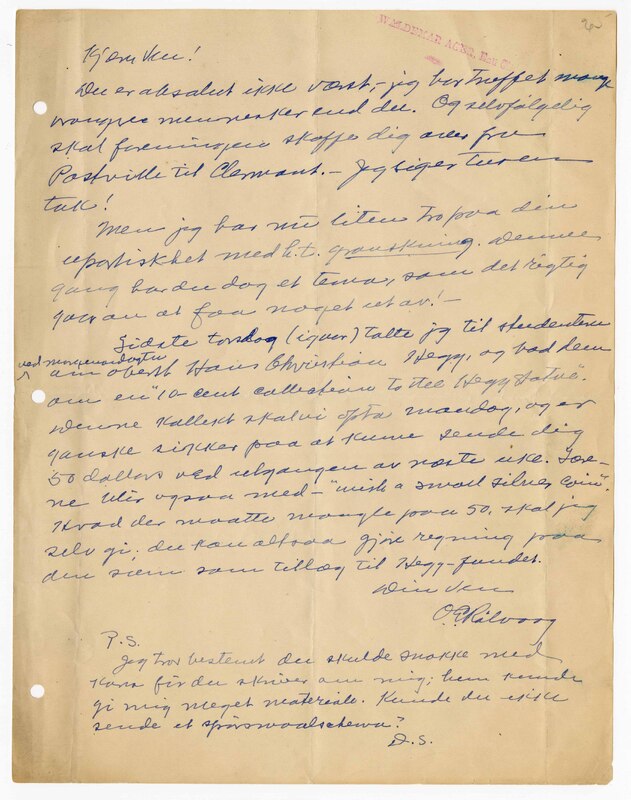 WALDEMAR AGER, Eau C
Kjære Ven!
Du er absolut ikke værst, – jeg har truffet mange
vrangere mennesker end du. Og selvfølgelig
skal foreningen skaffe dig over fra
Postville til Clermont. – Jeg siger turen
tak!
Men jeg har nu liten tro paa din
upartiskhet med h.t. granskning. Denne
gang har du dog et tema, som det rigtig
gaar an at faa noget ut av! –
Sidste torsdag (igaar) talte jeg til studentene
ved morgenandagten
om oberst Hans Christian Hegg, og bad dem
om en "10-cent collection to the Hegg Statue".
Denne kollekt skal vi opta mandag, og er
ganske sikker paa at kunne sende dig
50 dollars ved utgangen av næste uke. Lære-
ne blir ogsaa med – "with a small silver coin".
Hvad der maatte mangle paa 50, skal jeg
selv gi; du kan altsaa gjøre regning paa
den sum som tillæg til Hegg-fondet.
Din ven
O. E. Rölvaag
P.S.
Jeg tror bestemt du skulde snakke med
kona før du skriver om mig; hun kunde
gi mig meget materiale. Kunde du ikke
sende et spörsmaalschema?
D.S.